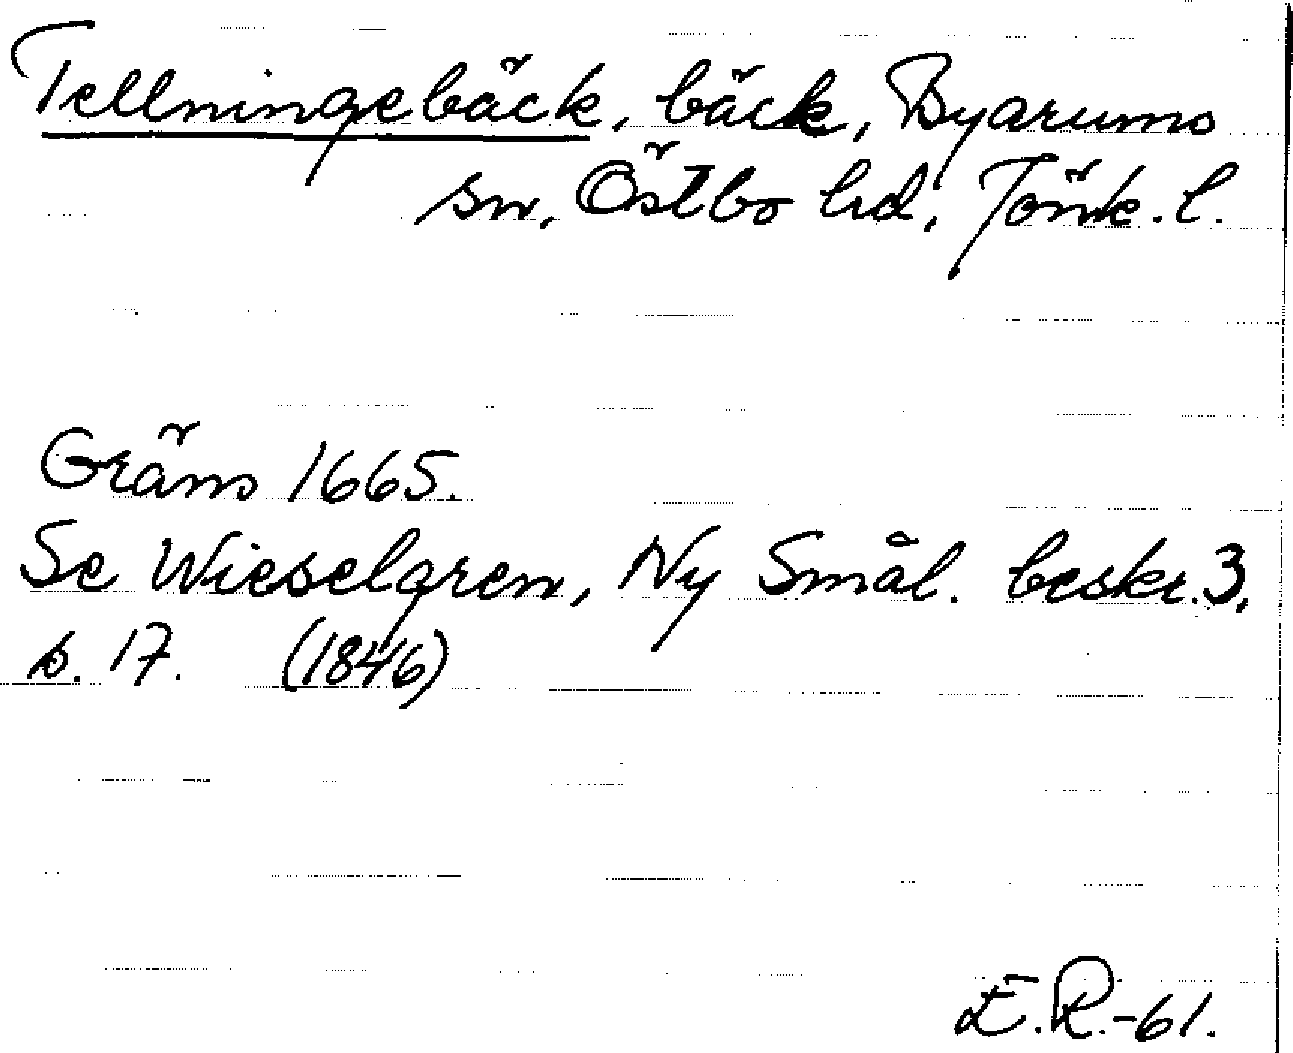 Tellningebäck, bäck, Byarums
sn, Östbo hd, Jönk. l.
Gräns 1665.
Se Wieselgren, Ny Smål. beskr. 3,
s. 17. (1846)
E.R.-61.